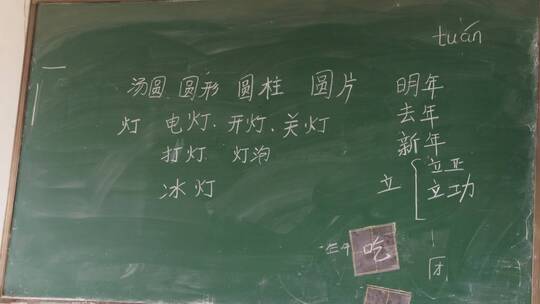 tuán
汤圆 圆形 圆柱 圆片 明年
灯 电灯、开灯、关灯 去年
打灯 灯泡 新年
冰灯 立 立正
立功
吃
团